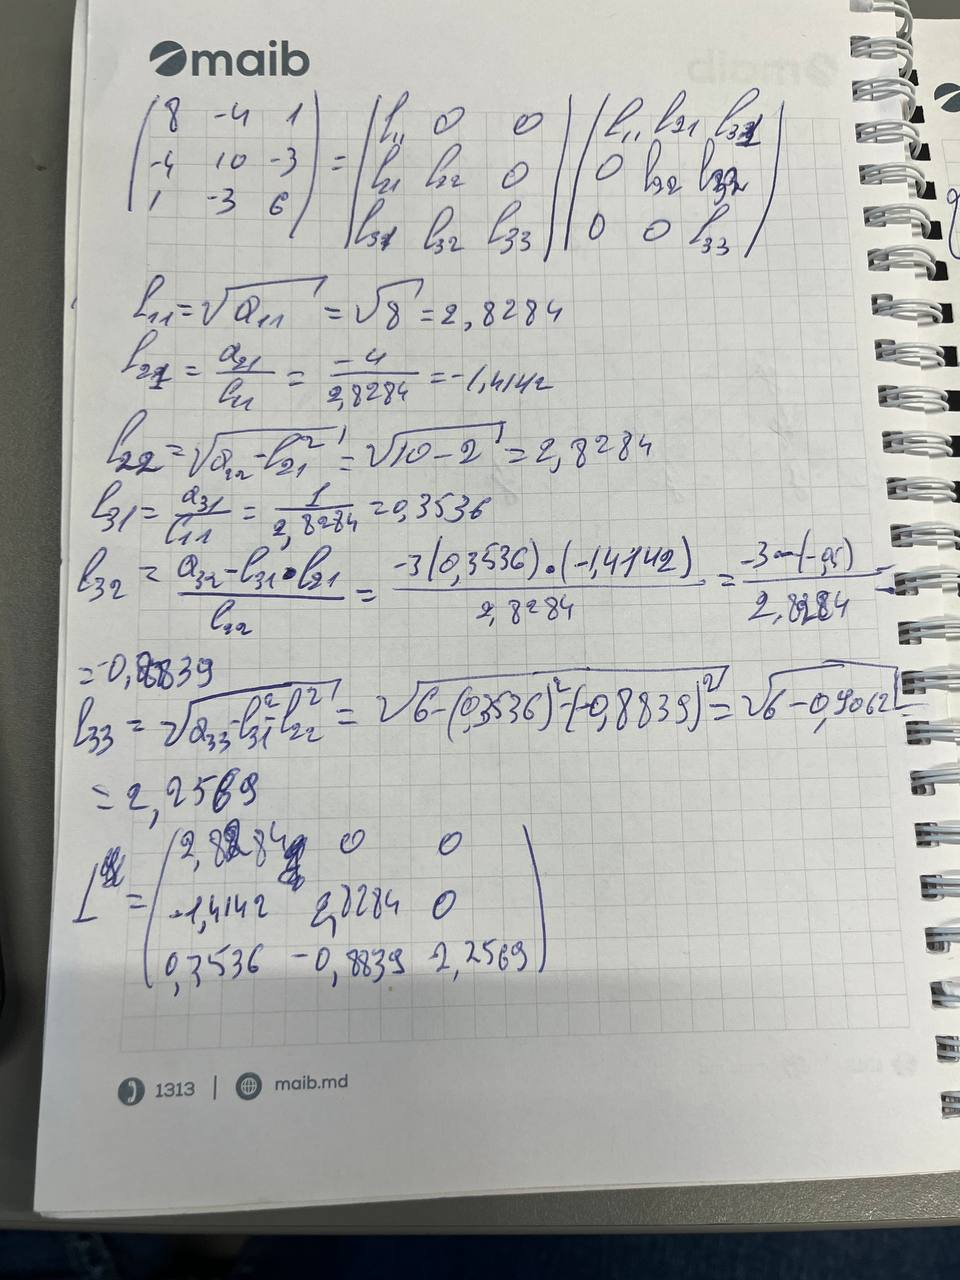 maib
( 8 -4 1 ) ( l₁₁ 0 0 ) ( l₁₁ l₂₁ l₃₁ )
( -4 10 -3 ) = ( l₂₁ l₂₂ 0 ) ( 0 l₂₂ l₃₂ )
( 1 -3 6 ) ( l₃₁ l₃₂ l₃₃ ) ( 0 0 l₃₃ )
l₁₁ = √a₁₁ = √8 = 2,8284
l₂₁ = a₂₁/l₁₁ = -4/2,8284 = -1,4142
l₂₂ = √(a₂₂ - l₂₁²) = √(10-2) = 2,8284
l₃₁ = a₃₁/l₁₁ = 1/2,8284 = 0,3536
l₃₂ = (a₃₂ - l₃₁ • l₂₁)/l₂₂ = (-3(0,3536)•(-1,4142))/2,8284 = (-3-(-0,5))/2,8284 =
= -0,8839
l₃₃ = √(a₃₃ - l₃₁² - l₂₂²) = √(6-(0,3536)²-(-0,8839)²) = √(6-0,9062) =
= 2,2569
L = ( 2,8284 0 0 )
( -1,4142 2,8284 0 )
( 0,3536 -0,8839 2,2569 )
1313 | maib.md